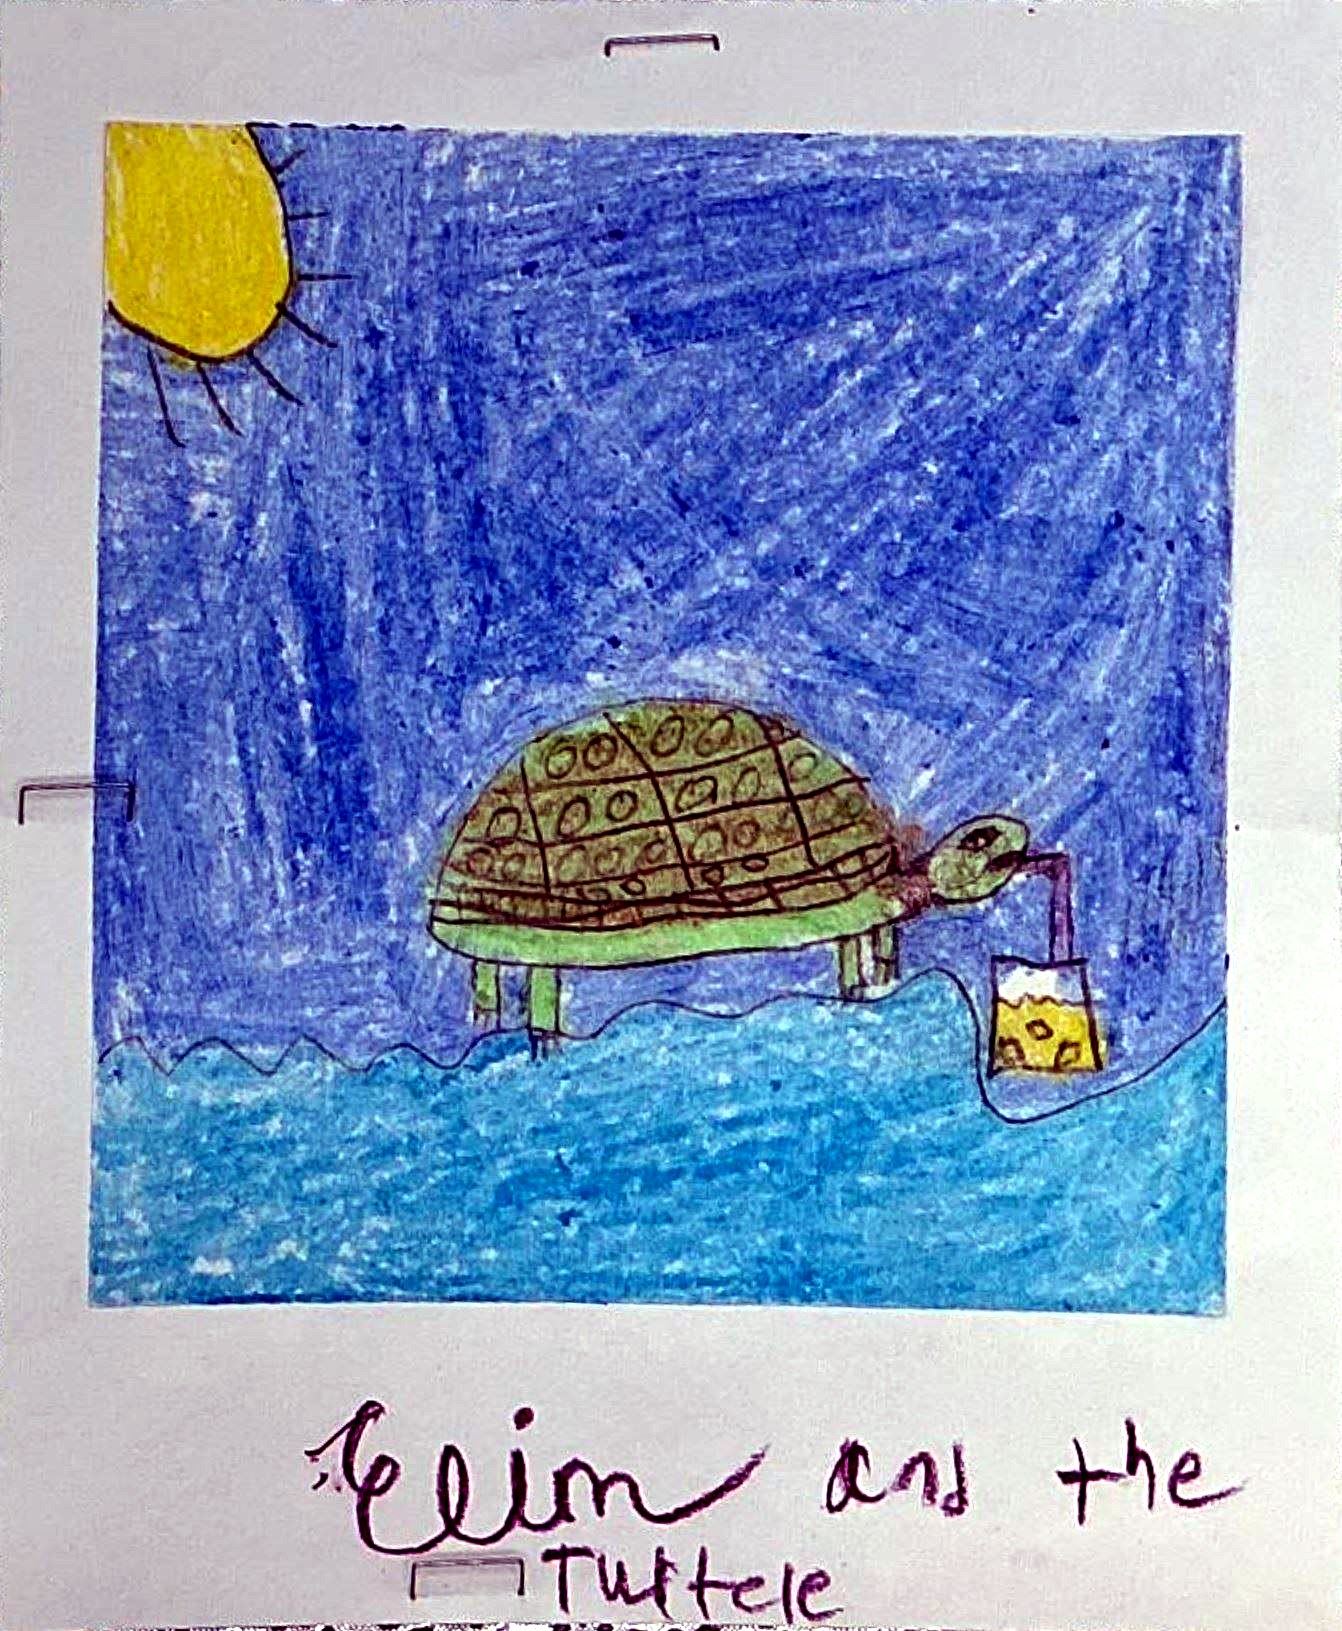 Elim and the
Turtele